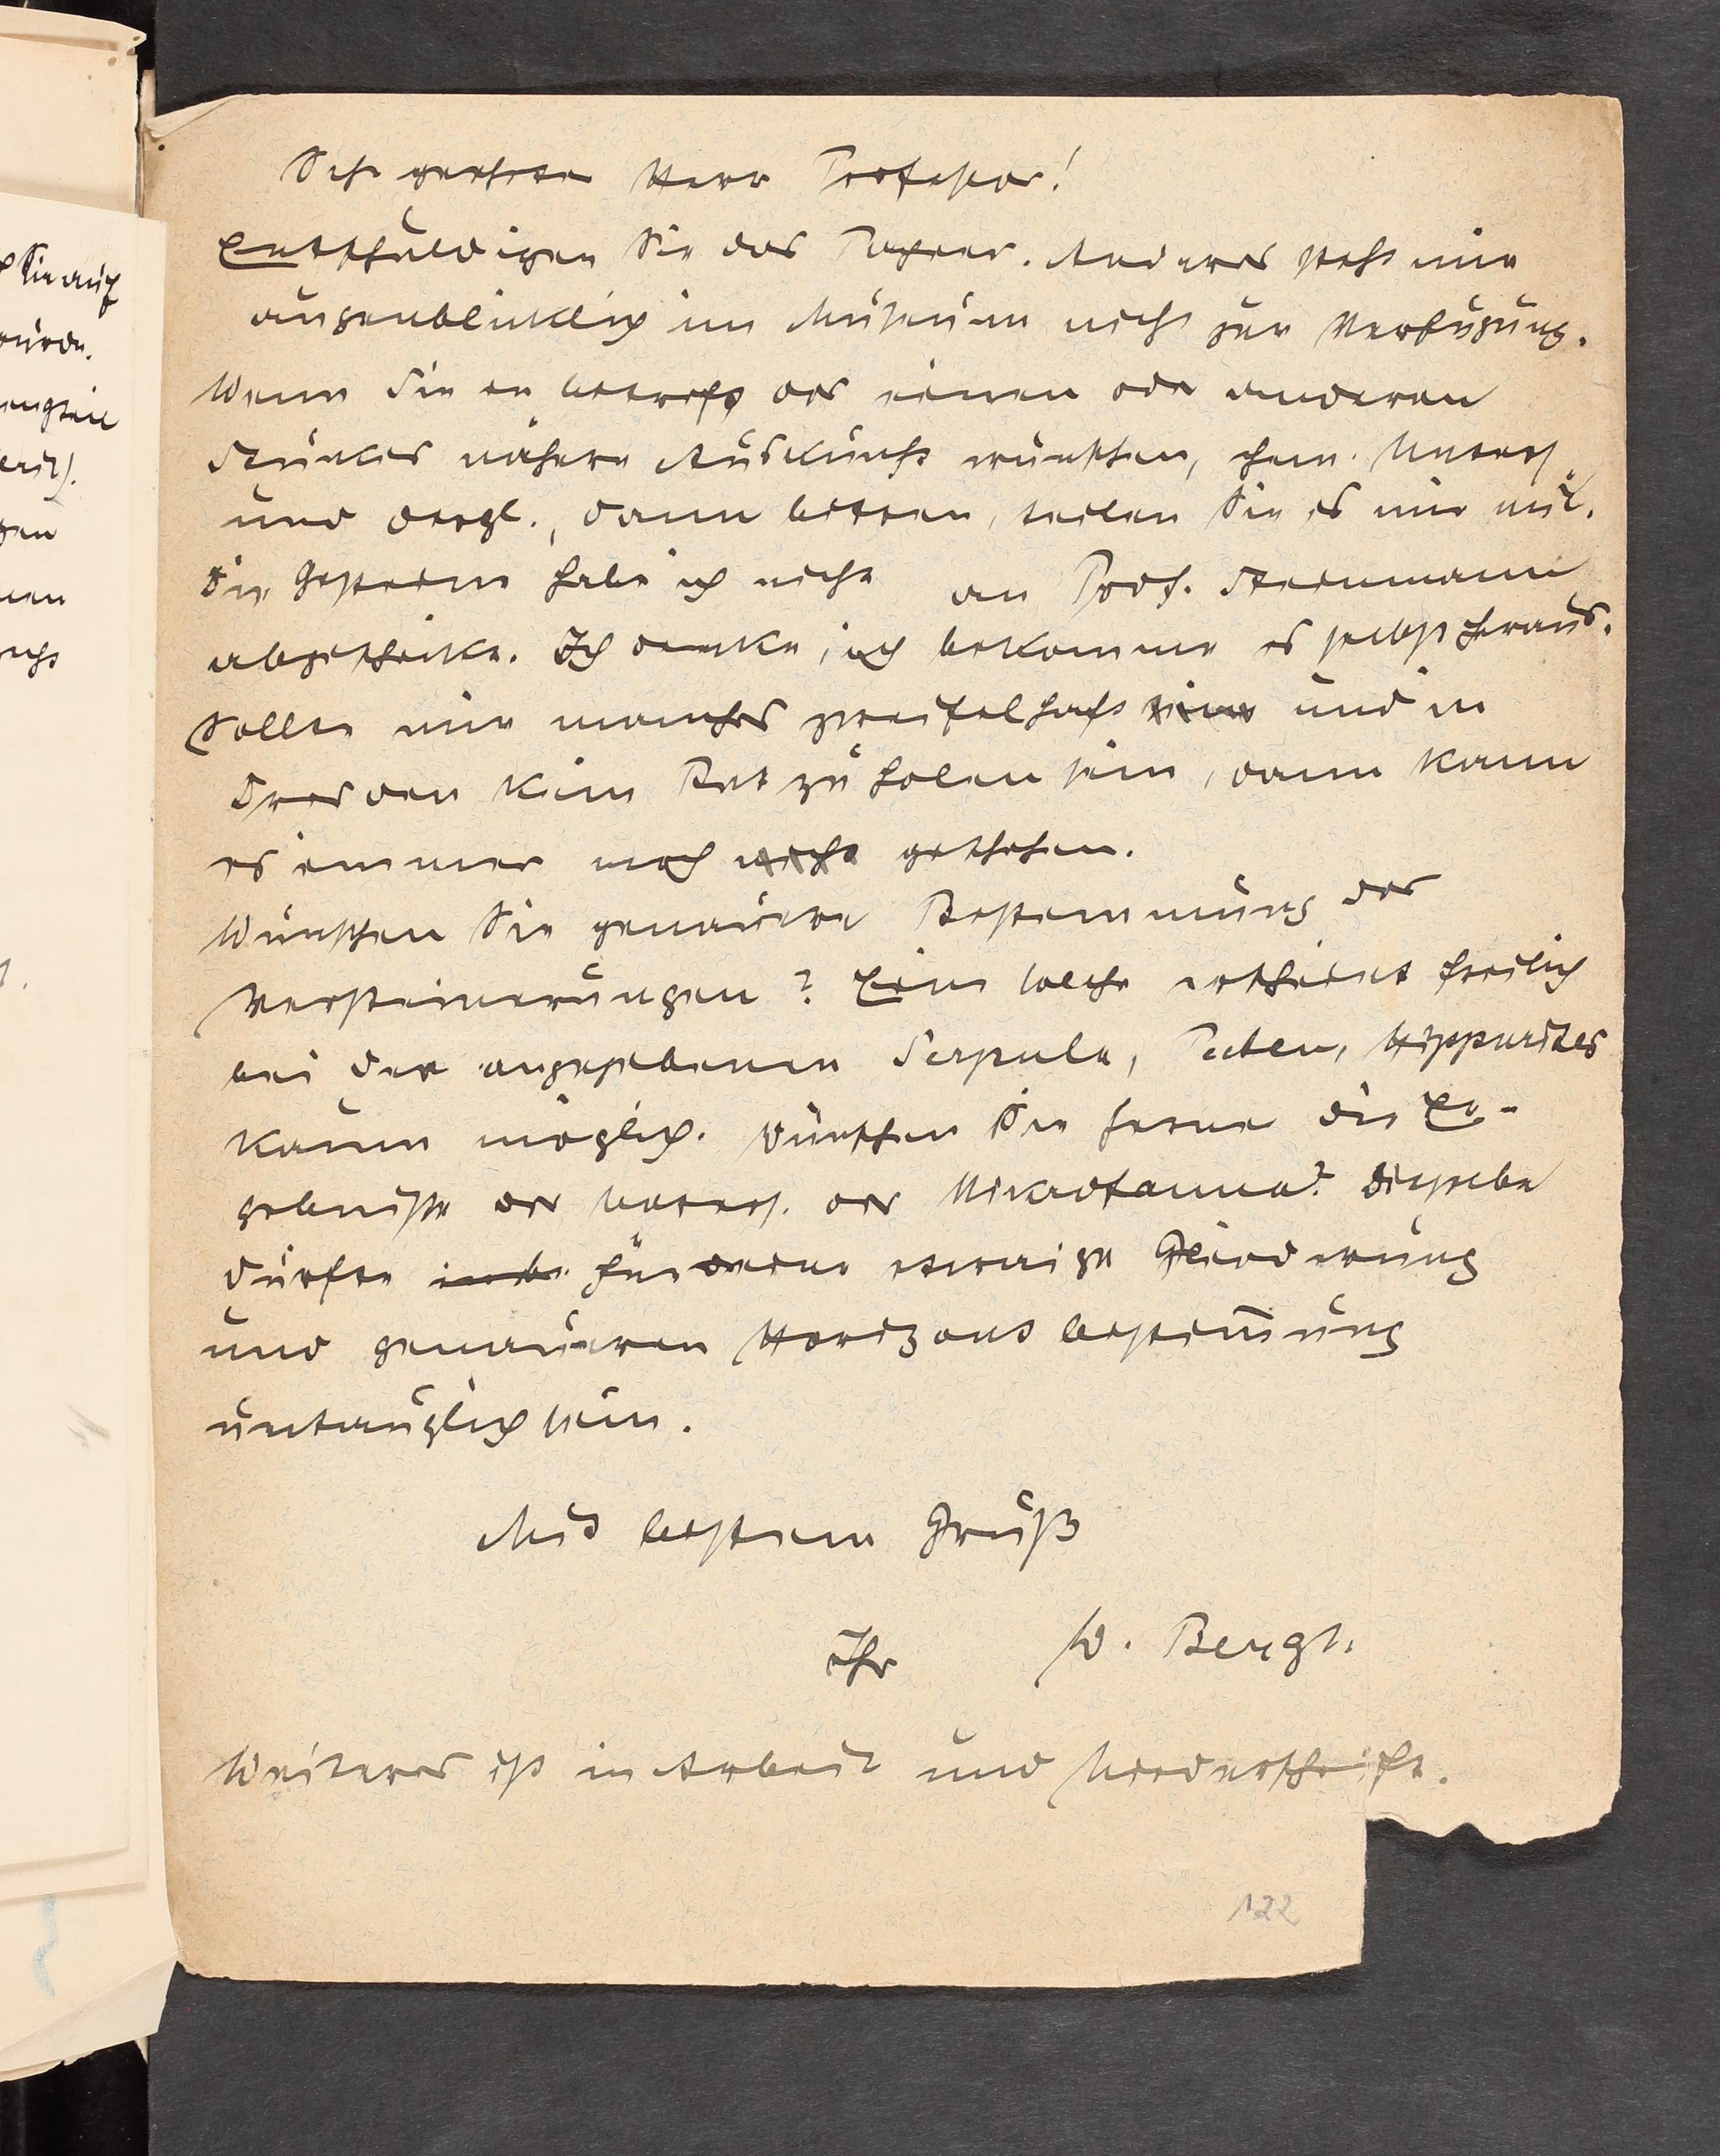 Sehr geehrter Herr Professor!
Entschuldigen Sie das Papier. Anderes steht mir
augenblicklich im Museum nicht zur Verfügung.
Wenn Sie in betreff des einen oder anderen
Stückes nähere Auskunft wünschen, chem. Unters.
und dergl., dann bitten, teilen Sie es mir mit.
Die Gesteine habe ich nicht an Prof. Steinmann
abgeschickt. Ich denke, ich bekomme es selbst heraus.
Sollte mir manches zweifelhaft sein und in
Dresden kein Rat zu holen sein, dann kann
es immer noch nicht geschehen.
Wünschen Sie genauere Bestimmung der
Versteinerungen? Eine solche erscheint freilich
bei den angegebenen Serpula, Pecten, Hippurites
kaum möglich. Wünschen Sie ferner die Er-
gebnisse der Unters. der Mikrofauna? Dieselbe
dürfte für eine etwaige Gliederung
und genaueren Horizontbestimmung
untauglich sein.
Mit bestem Gruß
Ihr W. Bergt.
Weiteres ist in Arbeit und Niederschrift.
122
Sie auf
würde.
gen